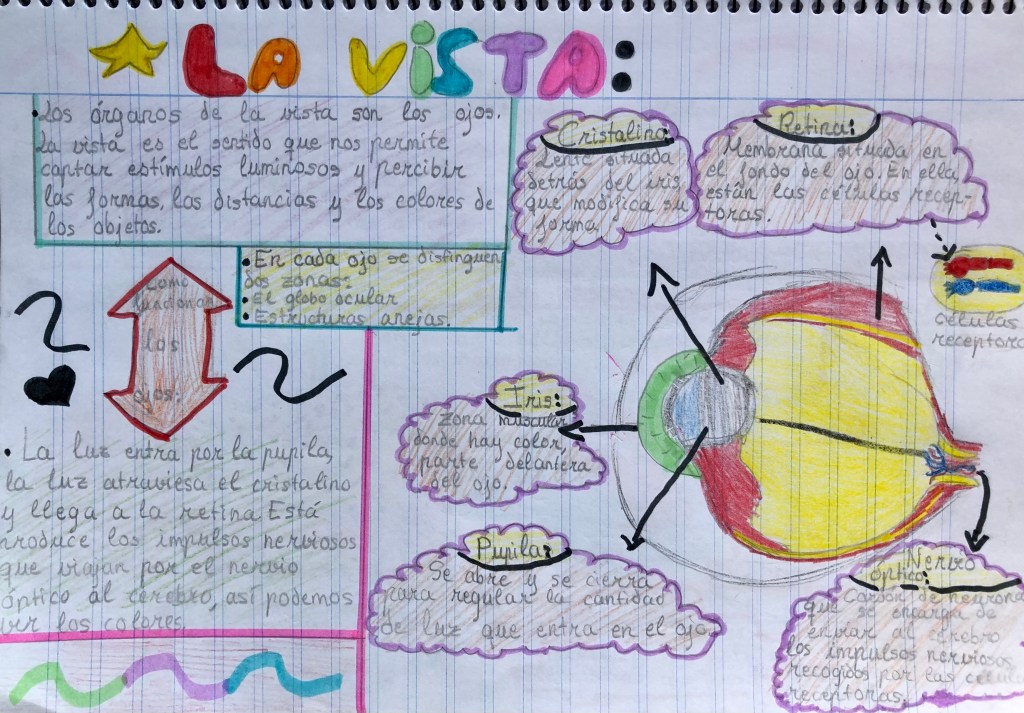 LA ViSTA:
• Los órganos de la vista son los ojos.
La vista es el sentido que nos permite
captar estímulos luminosos y percibir
las formas, las distancias y los colores de
los objetos.
• En cada ojo se distinguen
dos zonas:
• El globo ocular
• Estructuras anejas.
como
funcionan
los
ojos:
• La luz entra por la pupila,
la luz atraviesa el cristalino
y llega a la retina Está
produce los impulsos nerviosos
que viajan por el nervio
óptico al cerebro, así podemos
ver los colores.
Cristalino:
Lente situada
detrás del iris
que modifica su
forma.
Retina:
Membrana situada en
el fondo del ojo. En ella
están las células recep-
toras.
células
receptora
Iris:
Zona muscular
donde hay color,
parte delantera
del ojo.
Pupila:
Se abre y se cierra
para regular la cantidad
de luz que entra en el ojo.
Nervio
óptico:
de neurona
que se encarga de
enviar al cerebro
los impulsos nerviosos
recogidos por las célula
receptoras.